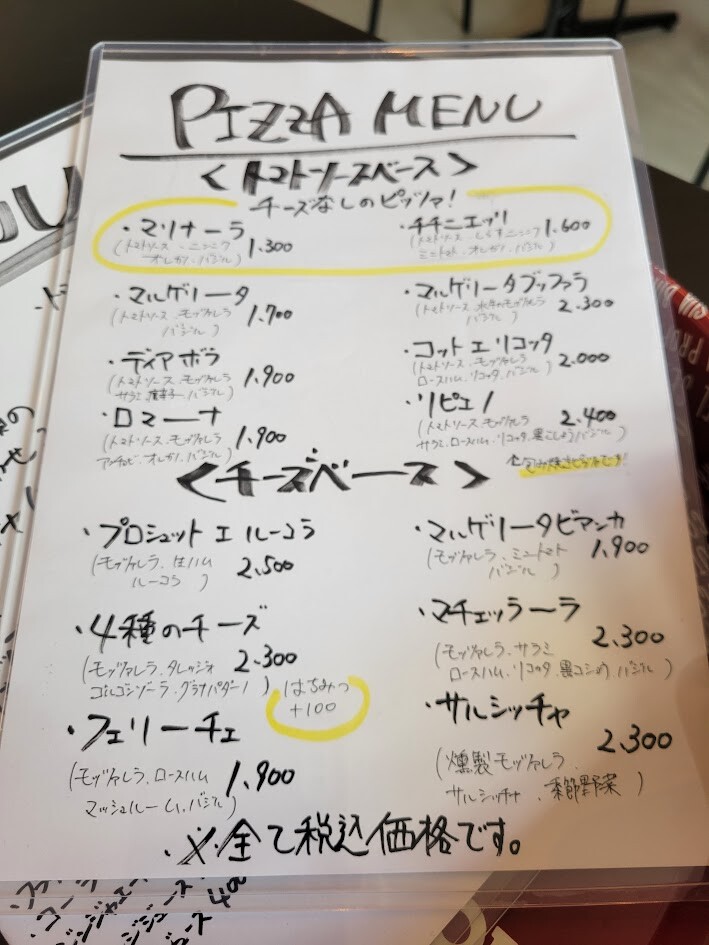 PIZZA MENU
<トマトソースベース>
チーズなしのピッツァ!
・マリナーラ
(トマトソース、ニンニク
オレガノ、バジル)
1.300
・チチニエッリ
(トマトソース、しらす、ニンニク
ミニトマト、オレガノ、バジル)
1.600
・マルゲリータ
(トマトソース、モッツァレラ
バジル)
1.700
・マルゲリータブッファラ
(トマトソース、水牛のモッツァレラ
バジル)
2.300
・ディアボラ
(トマトソース、モッツァレラ
サラミ、唐辛子、バジル)
1.900
・コットエリコッタ
(トマトソース、モッツァレラ
ロースハム、リコッタ、バジル)
2.000
・ロマーナ
(トマトソース、モッツァレラ
アンチョビ、オレガノ、バジル)
1.900
・リピエノ
(トマトソース、モッツァレラ
サラミ、ロースハム、リコッタ、黒こしょう、バジル)
2.400
<チーズベース>
・プロシュット エ ルーコラ
(モッツァレラ、生ハム
ルーコラ)
2.500
・マルゲリータビアンカ
(モッツァレラ、ミニトマト
バジル)
1.900
・4種のチーズ
(モッツァレラ、タレッジョ
ゴルゴンゾーラ、グラナパダーノ)
2.300
はちみつ
+100
・マチェッラーラ
(モッツァレラ、サラミ
ロースハム、リコッタ、黒コショウ、バジル)
2.300
・フェリーチェ
(モッツァレラ、ロースハム
マッシュルーム、バジル)
1.900
・サルシッチャ
(燻製モッツァレラ、
サルシッチャ、季節野菜)
2.300
※全て税込価格です。